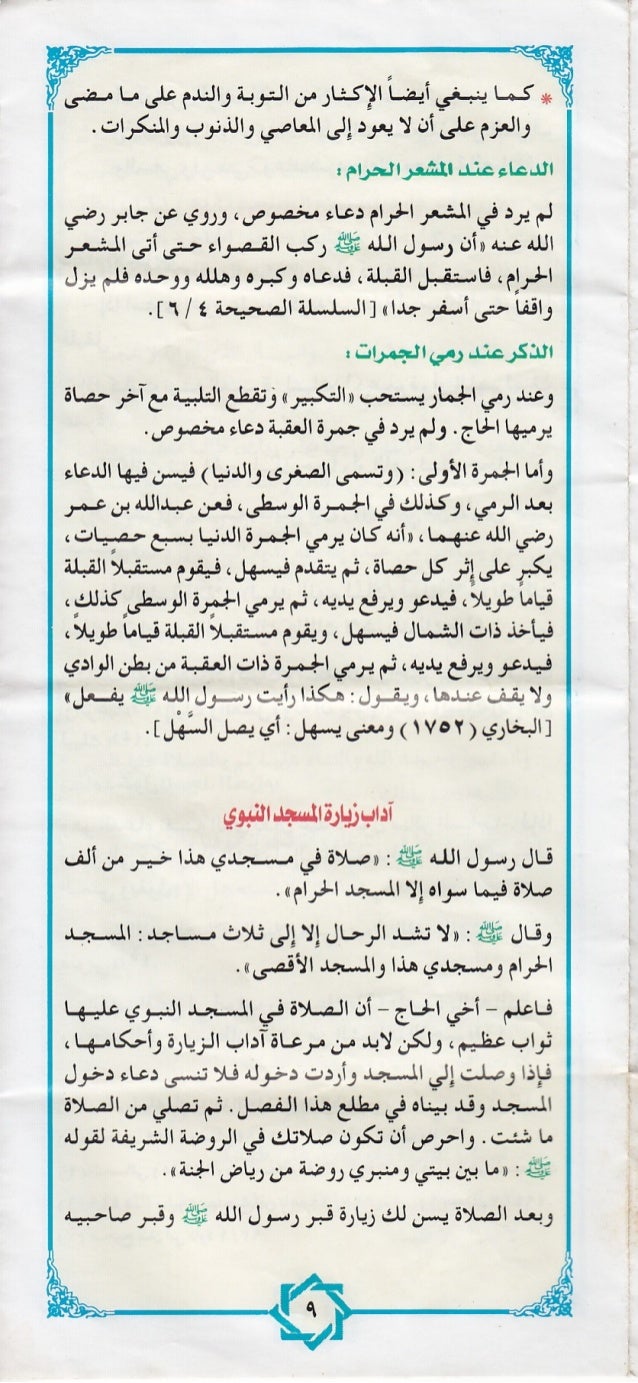 * كما ينبغي أيضاً الإكثار من التوبة والندم على ما مضى
والعزم على أن لا يعود إلى المعاصي والذنوب والمنكرات .
الدعاء عند المشعر الحرام :
لم يرد في المشعر الحرام دعاء مخصوص ، وروي عن جابر رضي
الله عنه «أن رسول الله ﷺ ركب القصواء حتى أتى المشعر
الحرام ، فاستقبل القبلة ، فدعاه وكبره وهلله ووحده فلم يزل
واقفاً حتى أسفر جدا» [ السلسلة الصحيحة ٤ / ٦ ] .
الذكر عند رمي الجمرات :
وعند رمي الجمار يستحب «التكبير» وتقطع التلبية مع آخر حصاة
يرميها الحاج . ولم يرد في جمرة العقبة دعاء مخصوص .
وأما الجمرة الأولى : ( وتسمى الصغرى والدنيا ) فيسن فيها الدعاء
بعد الرمي ، وكذلك في الجمرة الوسطى ، فعن عبدالله بن عمر
رضي الله عنهما ، «أنه كان يرمي الجمرة الدنيا بسبع حصيات ،
يكبر على إثر كل حصاة ، ثم يتقدم فيسهل ، فيقوم مستقبلاً القبلة
قياماً طويلاً ، فيدعو ويرفع يديه ، ثم يرمي الجمرة الوسطى كذلك ،
فيأخذ ذات الشمال فيسهل ، ويقوم مستقبلاً القبلة قياماً طويلاً ،
فيدعو ويرفع يديه ، ثم يرمي الجمرة ذات العقبة من بطن الوادي
ولا يقف عندها ، ويقول : هكذا رأيت رسول الله ﷺ يفعل»
[ البخاري ( ١٧٥٢ ) ومعنى يسهل : أي يصل السَّهْل ] .
آداب زيارة المسجد النبوي
قال رسول الله ﷺ : «صلاة في مسجدي هذا خير من ألف
صلاة فيما سواه إلا المسجد الحرام» .
وقال ﷺ : «لا تشد الرحال إلا إلى ثلاث مساجد : المسجد
الحرام ومسجدي هذا والمسجد الأقصى» .
فاعلم - أخي الحاج - أن الصلاة في المسجد النبوي عليها
ثواب عظيم ، ولكن لابد من مرعاة آداب الزيارة وأحكامها ،
فإذا وصلت إلي المسجد وأردت دخوله فلا تنسى دعاء دخول
المسجد وقد بيناه في مطلع هذا الفصل . ثم تصلي من الصلاة
ما شئت . واحرص أن تكون صلاتك في الروضة الشريفة لقوله
ﷺ : «ما بين بيتي ومنبري روضة من رياض الجنة» .
وبعد الصلاة يسن لك زيارة قبر رسول الله ﷺ وقبر صاحبيه
٩